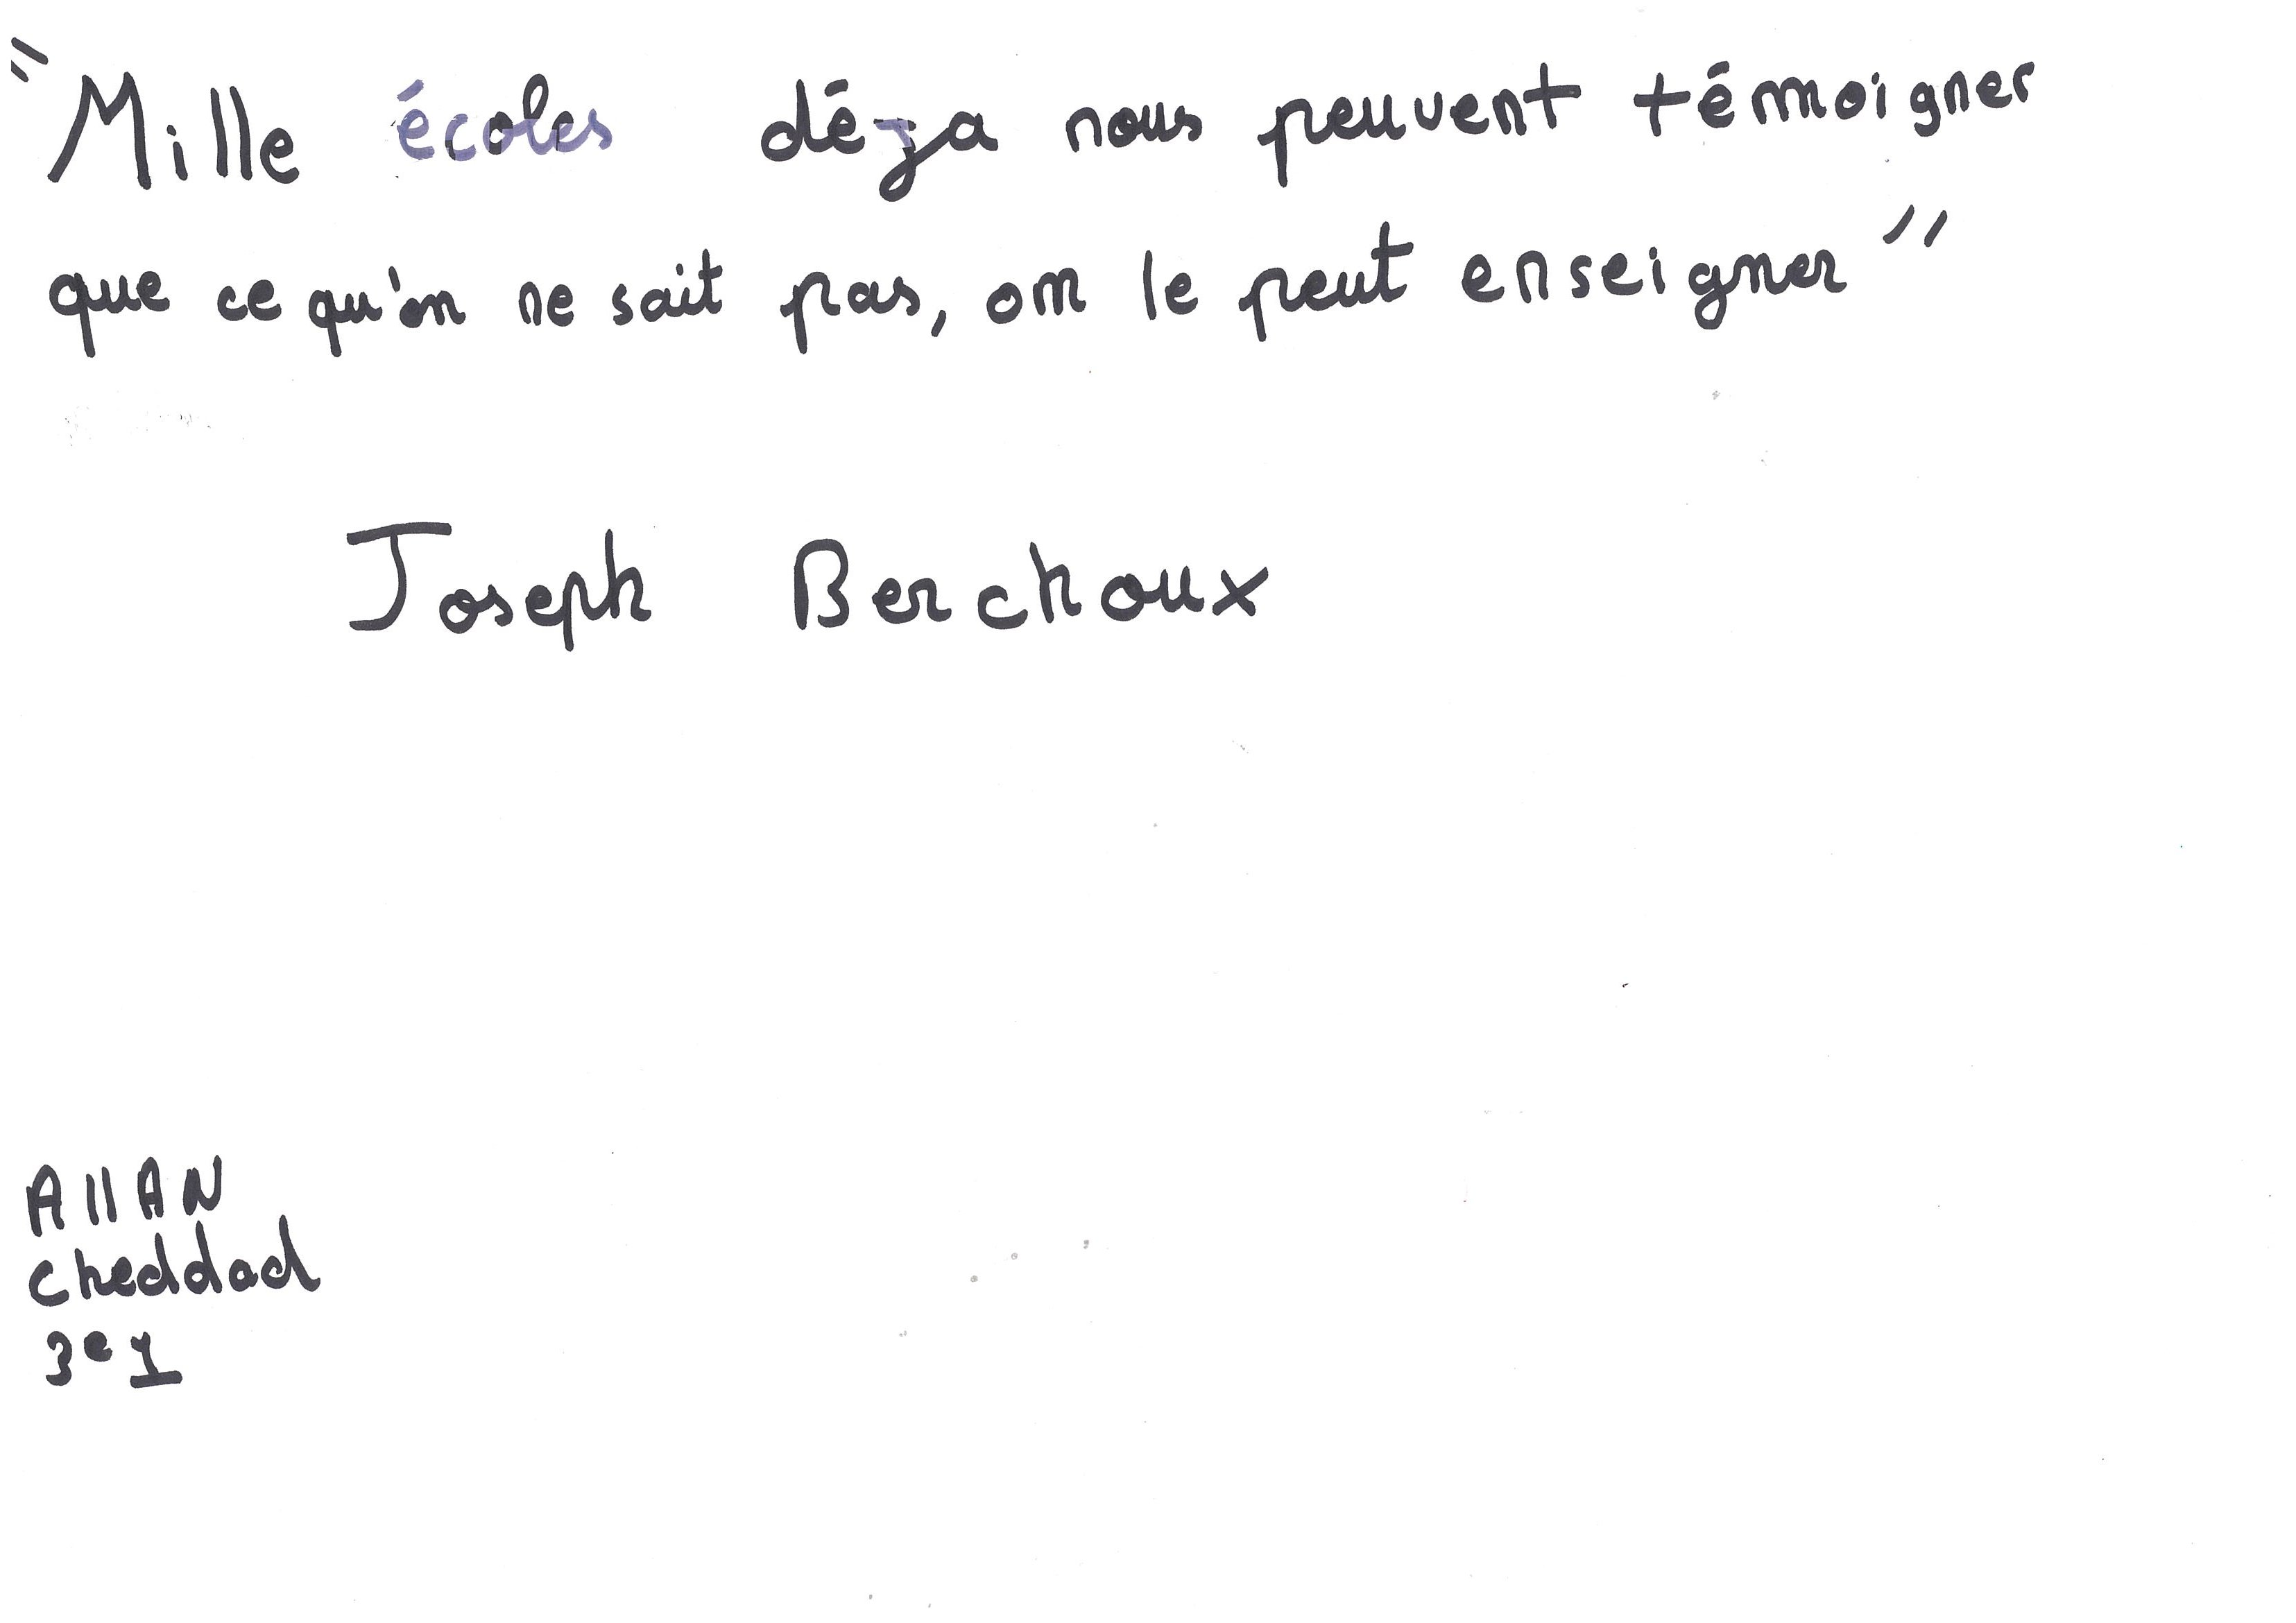 "Mille écoles déja nous peuvent témoigner
que ce qu'on ne sait pas, on le peut enseigner"
Joseph Berchoux
AllAN
cheddad
3e1